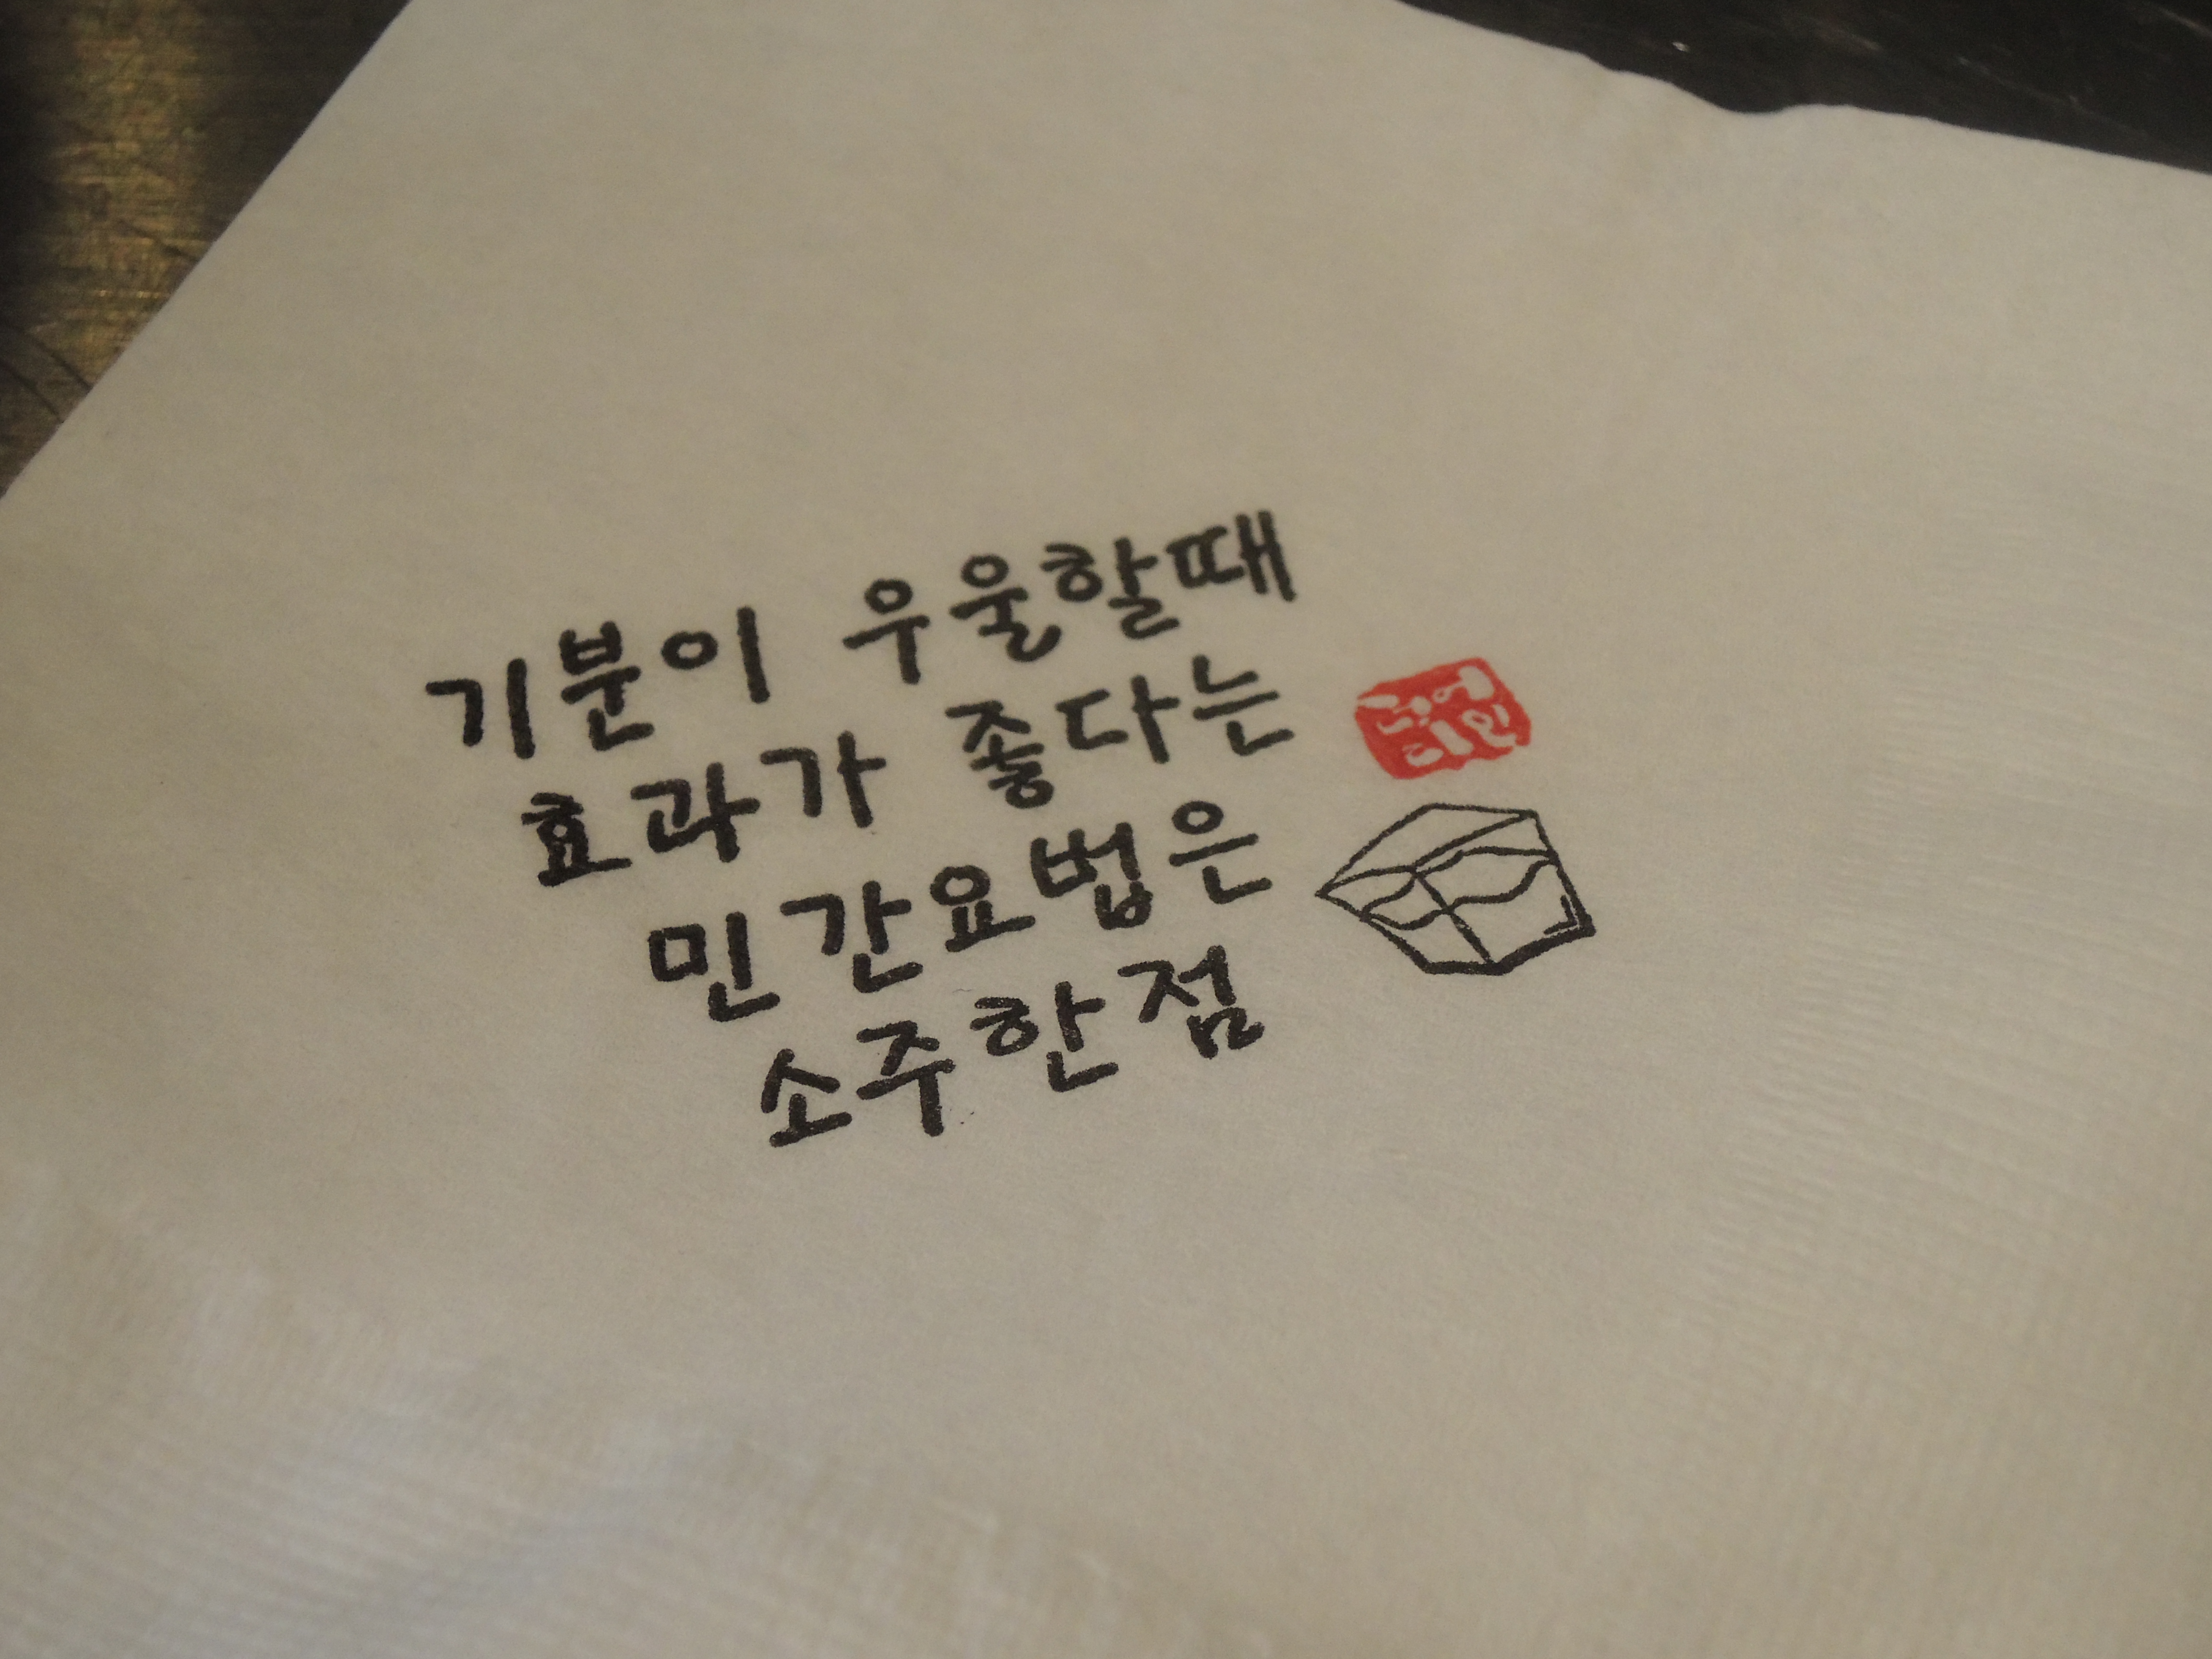 기분이 우울할때
효과가 좋다는
민간요법은
소주한점